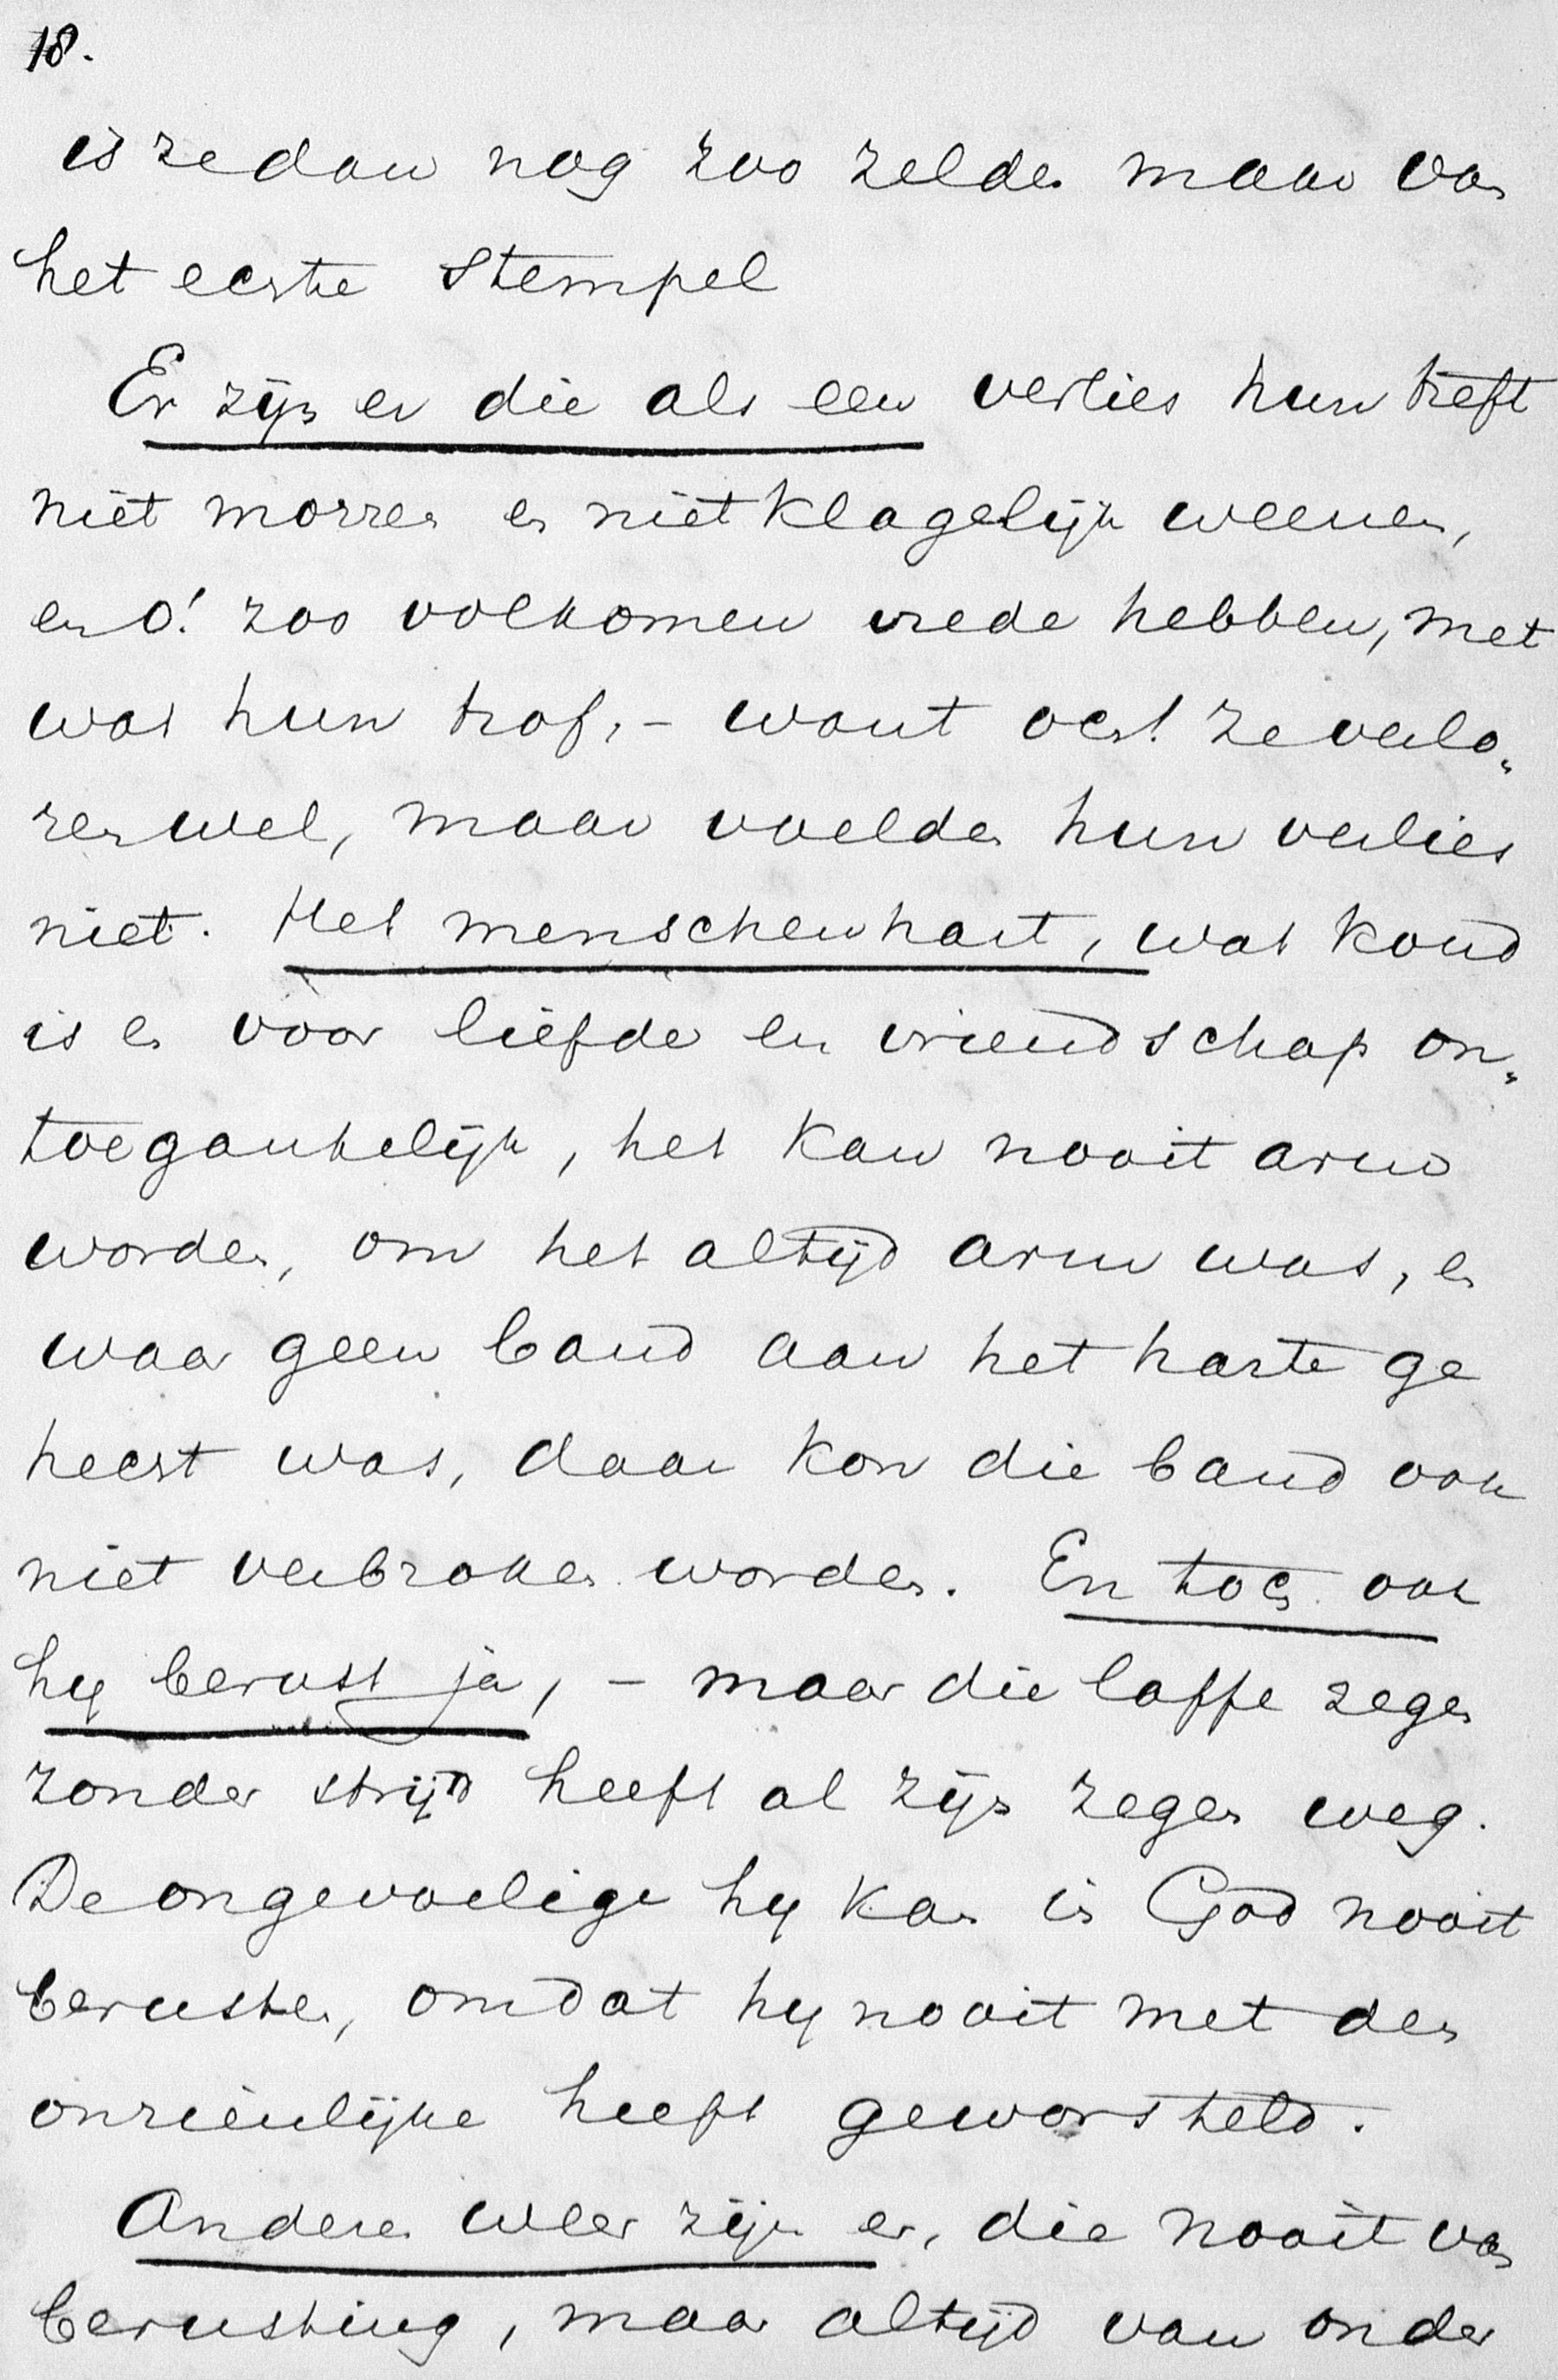 18.
is ze dan nog zoo zelden maar van
het echte stempel
Er zijn er die als een verlies hun treft
niet morren en niet klagelijk weenen,
en o! zoo volkomen vrede hebben, met
wat hun trof, - want och! ze verlo„
ren wel, maar voelden hun verlies
niet. Het menschenhart, wat koud
is en voor liefde en vriendschap on„
toegankelijk, het kan nooit arm
worden, om het altijd arm was, en
waar geen band aan het harte ge
hecht was, daar kon die band ook
niet verbroken worden. En toch ook
hij berust ja, - maar die laffe zegen
zonder strijd heeft al zijn zegen weg.
De ongevoelige hij kan in God nooit
berusten, omdat hij nooit met den
onzienlijke heeft geworsteld.
Anderen weer zijn er, die nooit van
berusting, maar altijd van onder